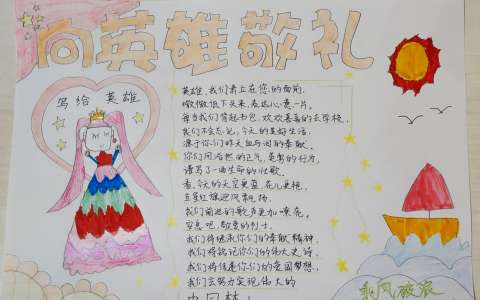 向英雄敬礼
写给 英雄
英雄,我们肃立在您的面前.
微微低下头来,表达心意一片.
每当我们背起书包,欢欢喜喜的去学校,
我们不会忘记,今天的美好生活.
源于你们昨天血与泪的奉献.
你们用浩然的正气,英勇的行为,
谱写了一曲生命的壮歌.
看,今天的天空更蓝,花儿更艳.
五星红旗迎风飘扬.
我们前进的歌声更加嘹亮.
安息吧,敬爱的勇士.
我们将继承你们的奉献精神,
我们将铭记你们的伟大史诗,
我们将传递你们的爱国梦想,
我们会努力实现伟大的
中国梦!
乘风破浪